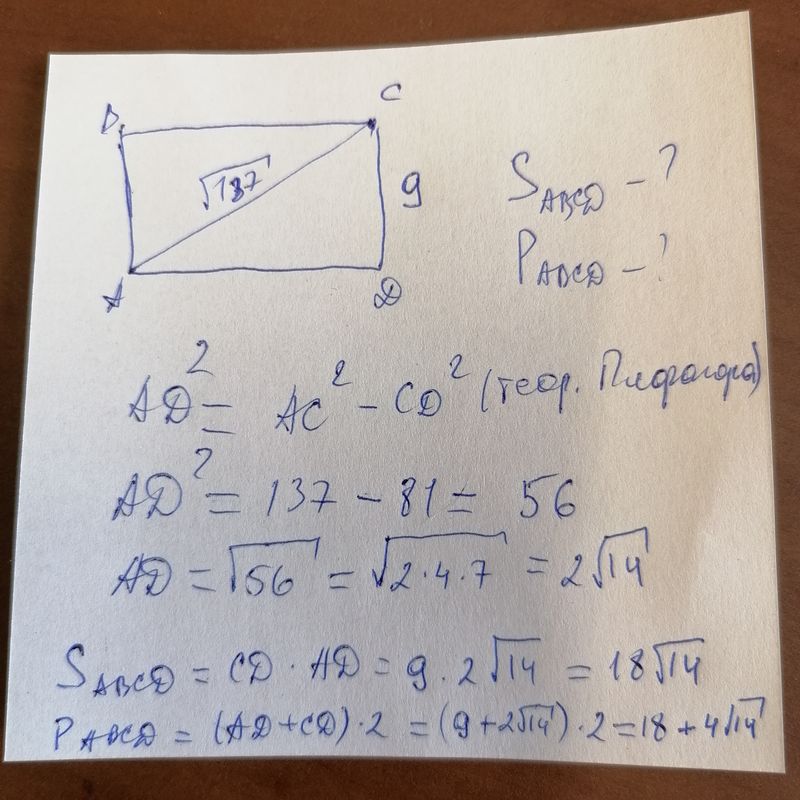 B C
√137 9
A D
S_ABCD - ?
P_ABCD - ?
AD² = AC² - CD² (теор. Пифагора)
AD² = 137 - 81 = 56
AD = √56 = √2·4·7 = 2√14
S_ABCD = CD · AD = 9 · 2√14 = 18√14
P_ABCD = (AD+CD)·2 = (9+2√14)·2 = 18 + 4√14